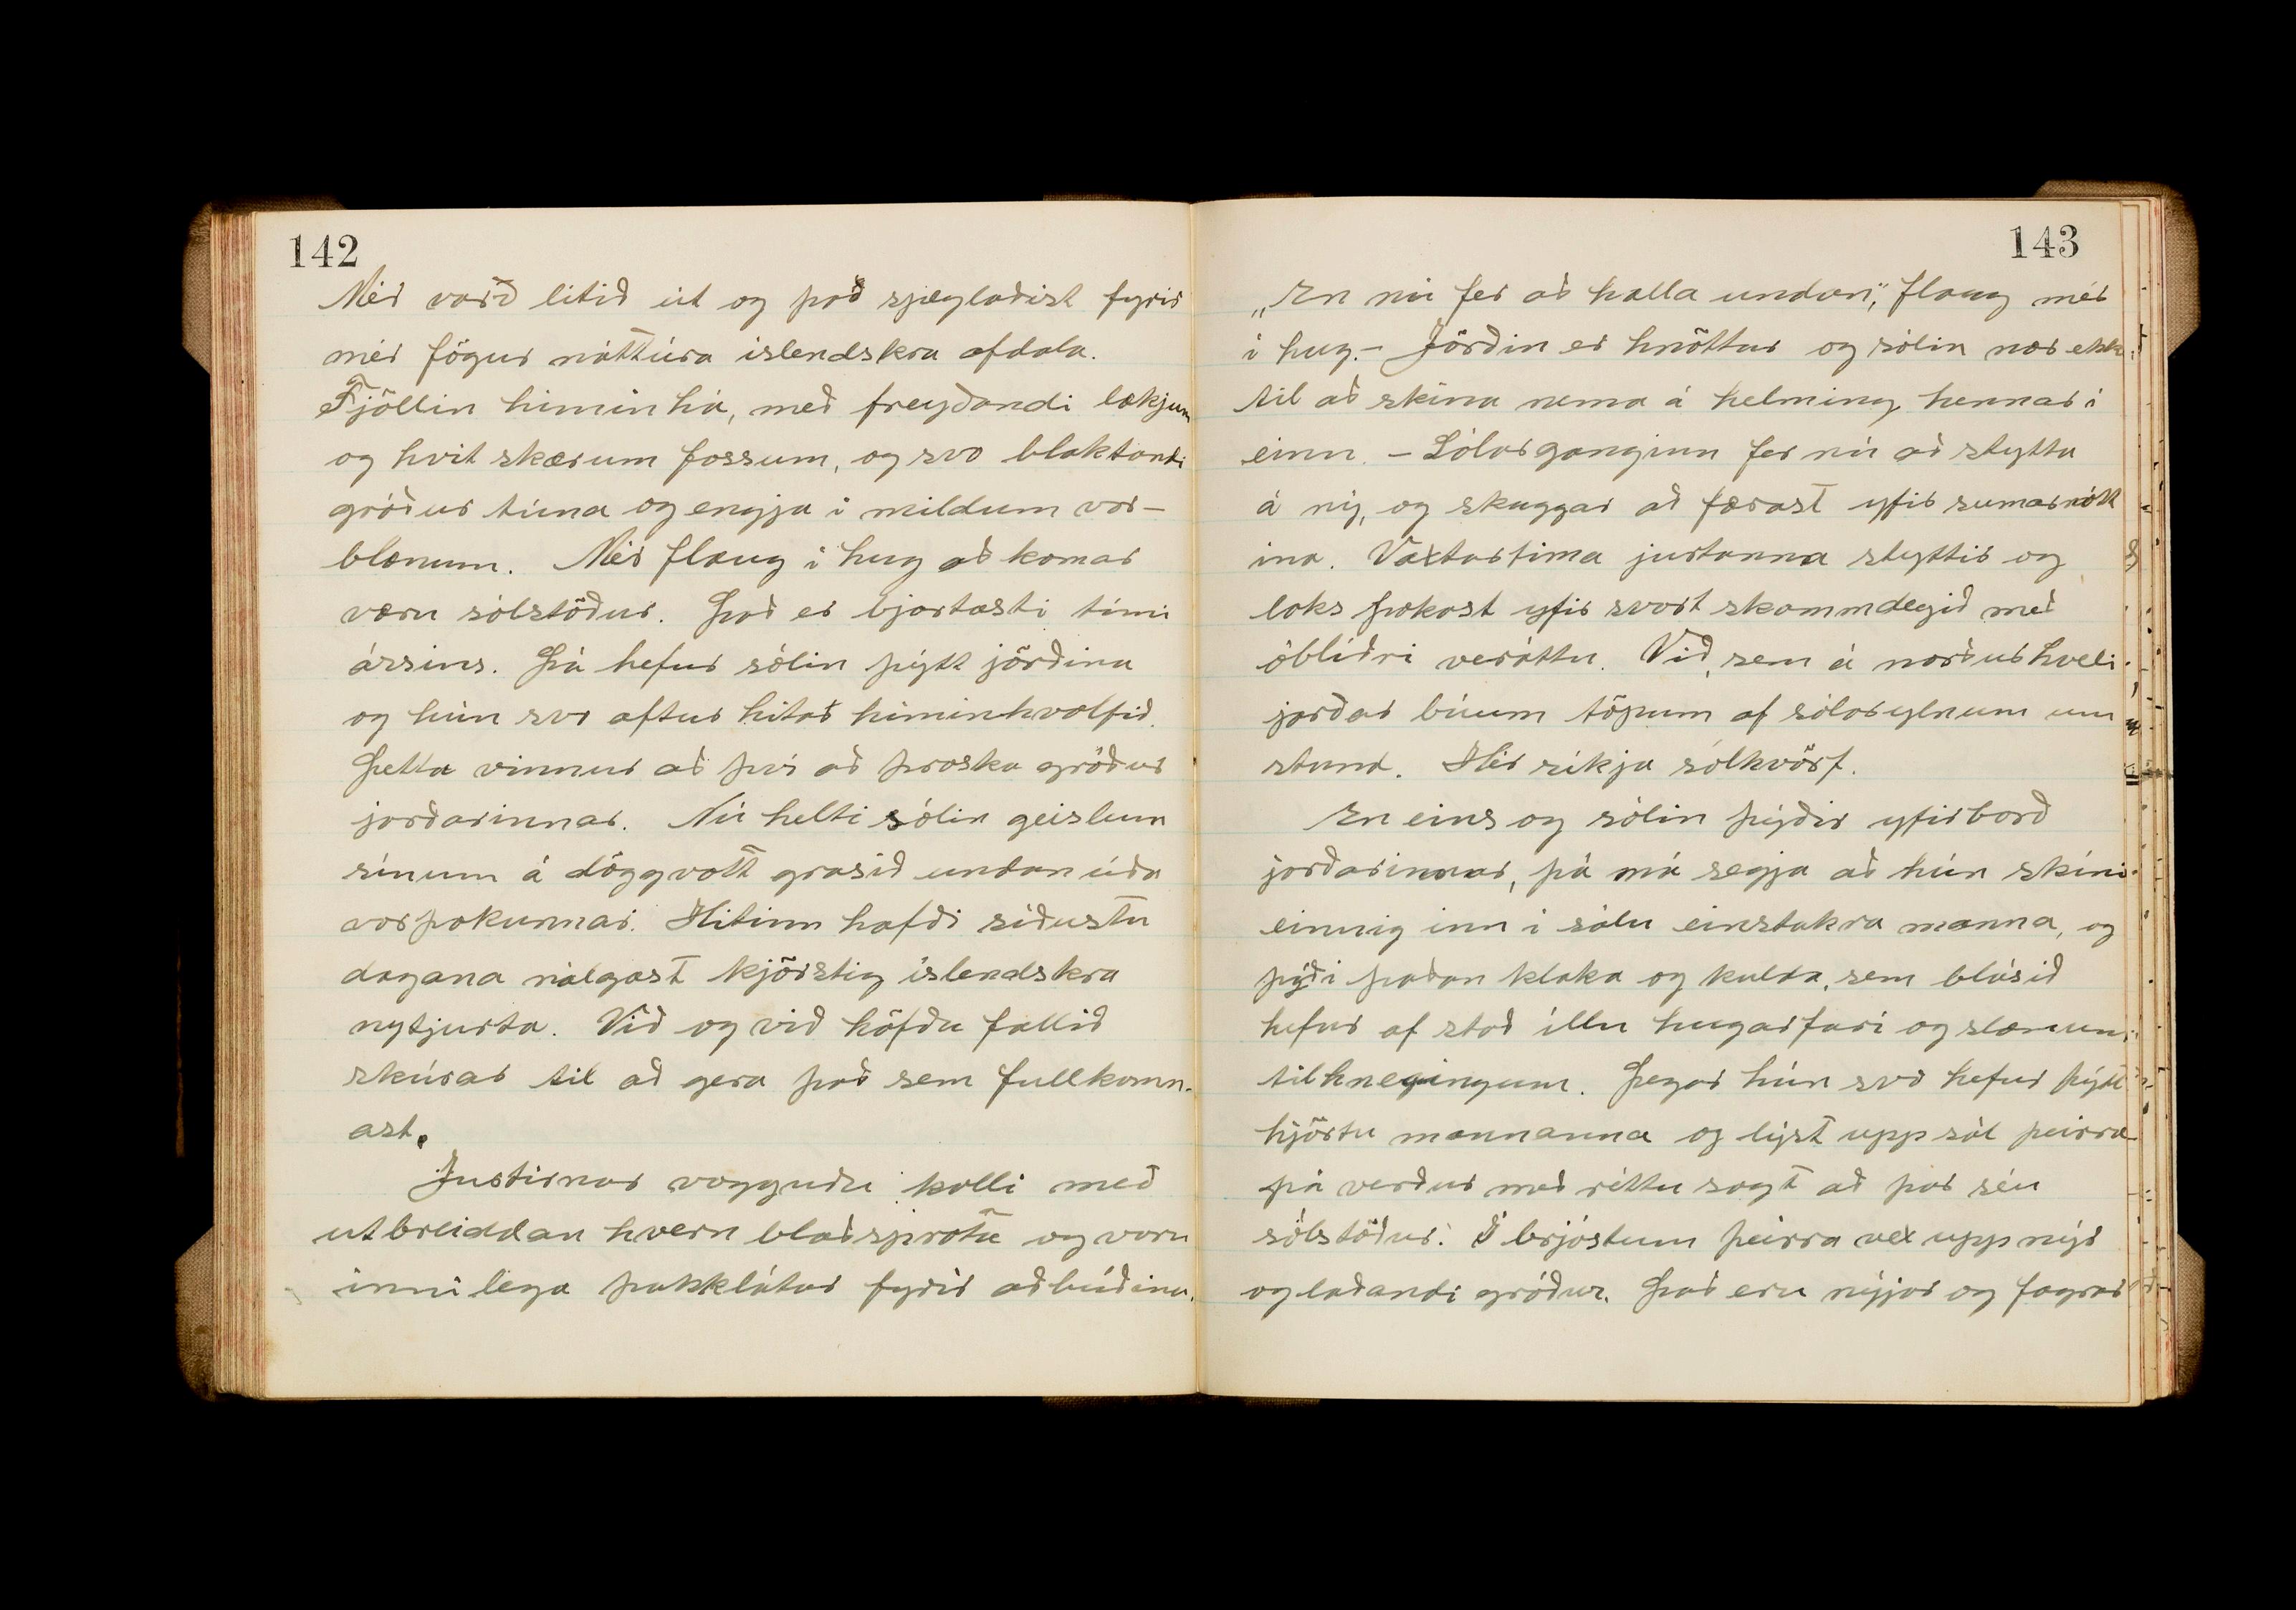 142
Mér varð litið út og það spegladist fyrir
mér fögur náttúra íslendskra afdala.
Fjöllin himinhá, með freyðandi lækjum
og hvít skærum fossum, og svo blaktandi
gróður túna og engja í mildum vor-
blænum. Mér flaug í hug að komar
væru sólstöður. Það er bjartasti tími
ársins. Þá hefur sólin þýtt jörðina
og hún svo aftur hitað himinhvolfið.
Þetta vinnur að því að þroska gróður
jarðarinnar. Nú helti sólin geislum
sínum á döggvott grasið undan úða
vorþokunnar. Hitinn hafði síðustu
dagana nálgast kjörstig íslendskra
nytjurta. Við og við höfðu fallið
skúrar til að gera það sem fullkomn-
ast.
Jurtirnar vögguðu kolli með
útbreiddan hvern blaðsprota og voru
innilega þakklátar fyrir aðbúðina.
143
„En nú fer að halla undan“, flaug mér
í hug. - Jörðin er hnöttur og sólin nær ekki
til að skína nema á helming hennar í
einn. - Sólarganginn fer nú að stytta
á ný, og skuggar að færast yfir sumarnótt
ina. Vaxtartíma jurtanna styttir og
loks þokast yfir svart skammdegið með
óblíðri veráttu. Við, sem á norðurhveli
jarðar búum töpum af sólarylnum um
stund. Hér ríkja sólhvörf.
En eins og sólin þýðir yfirborð
jarðarinnar, þá má segja að hún skíni
einnig inn í sálu einstakra manna, og
þýði þaðan klaka og kulda, sem blásið
hefur af stað illu hugarfari og slæmum
tilhnegingum. Þegar hún svo hefur þýtt
hjörtu mannanna og lýst upp sál þeirra
þá verður með réttu sagt að þar séu
sólstöður. Í brjóstum þeirra vex upp nýr
og laðandi gróður. Það eru nýjar og fagrar